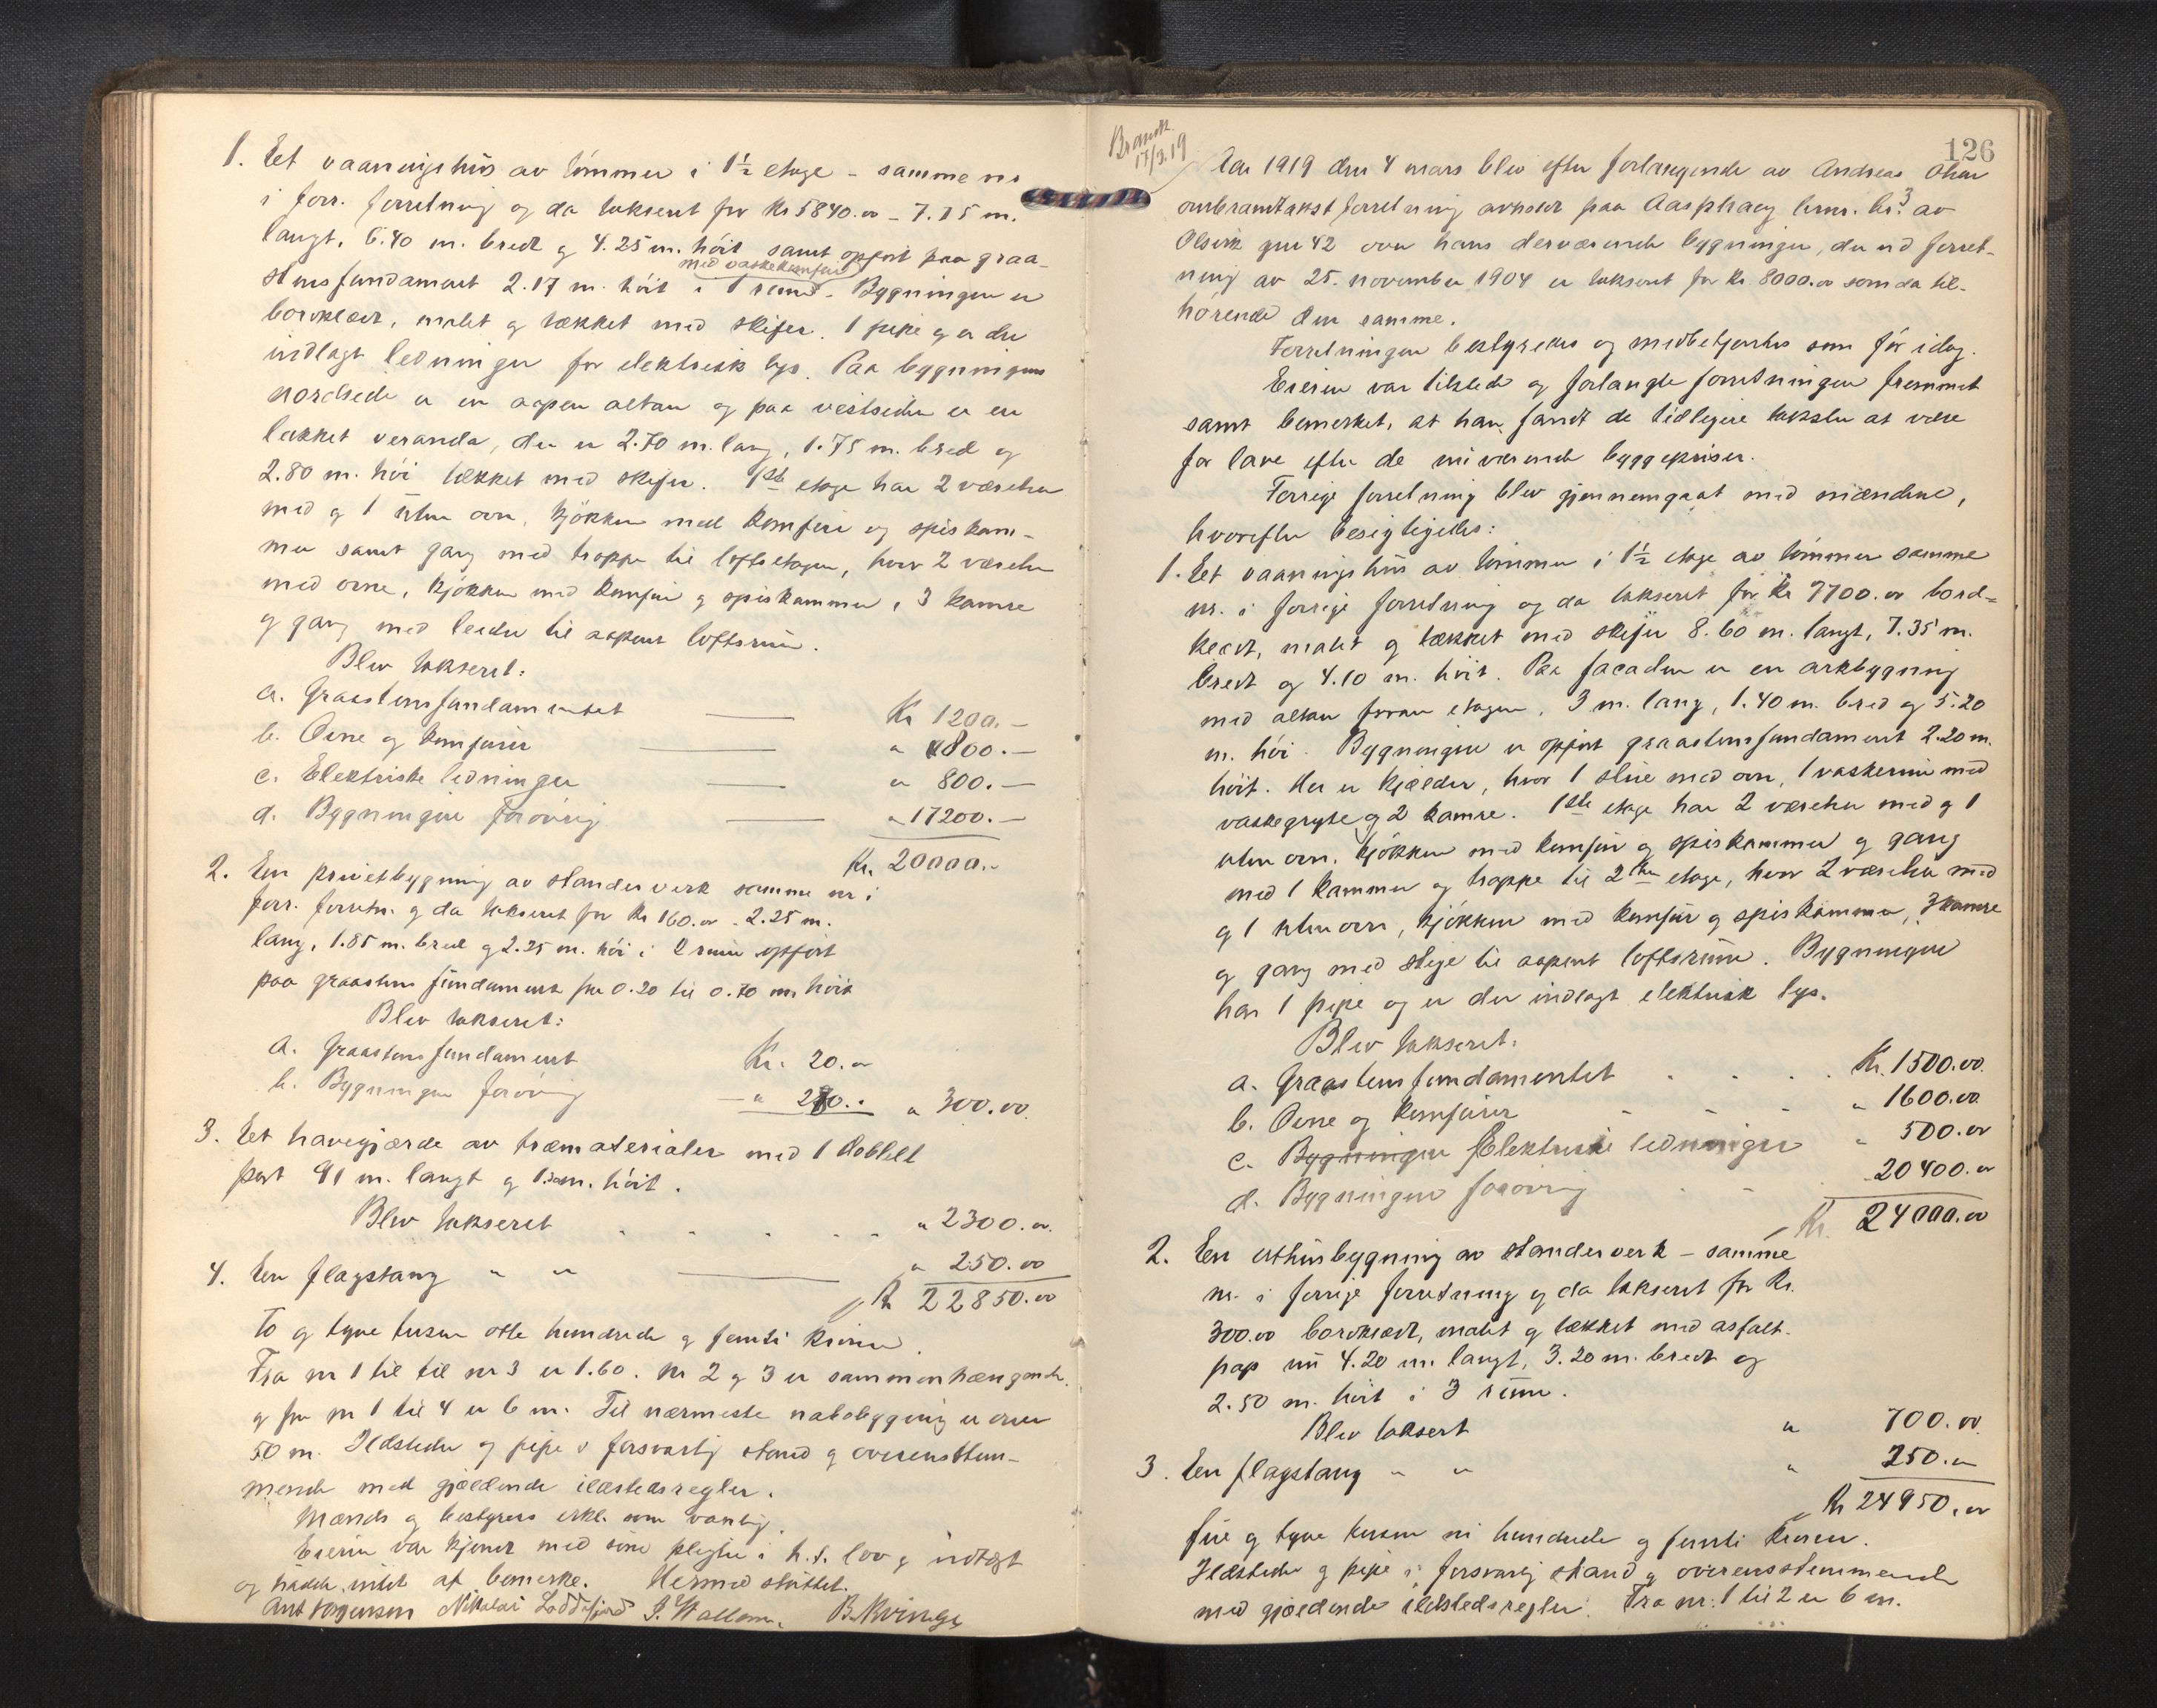 1. Eet vaaningshus av tømmer i 1½ etage - samme nr
i forr. forretning og da takseret for Kr 5840.00 - 7.75 m.
langt, 6.40 m. bredt og 4.25 m. høit samt opført paa graa-
med vaskekomfur
stensfundament 2.17 m. høit i 1 rum - Bygningen er
bordklædt, malet og tækket med skifer. 1 pipe og er der
indlagt ledninger for elektrisk lys. Paa bygningens
nordside er en aapen altan og paa vestsiden er en
lukket veranda, der er 2.70 m. lang, 1.75 m. bred og
2.80 m. høi tækket med skifer. 1ste etage har 2 værelser
med og 1 uten ovn, kjøkken med komfur og spiskam-
mer samt gang med trappe til loftsetagen, hvor 2 værelser
med ovne, kjøkken med komfur og spiskammer, 3 kamre
og gang med leider til aapent loftsrum.
Blev takseret:
a. Graastensfundamentet Kr 1200.-
b. Ovne og komfurer " 800.-
c. Elektriske ledninger " 800.-
d. Bygningen forøvrig " 17200.-
Kr. 20000.-
2. En privetbygning av standerverk samme nr i
forr. forretn. og da takseret for Kr 160.00 - 2.25 m.
lang, 1.85 m. bred og 2.25 m. høi i 2 rum opført
paa graastens fundament fra 0.20 til 0.70 m. høit
Blev takseret:
a. Graastensfundament Kr. 20.00
b. Bygningen forøvrig " 280.. " 300.00
3. Eet havegjærde av træmaterialer med 1 dobbelt
port 91 m. langt og m. høit.
Blev takseret " 2300.00
4. En flagstang " " " 250.00
Kr 22850.00
To og tyve tusen otte hundrede og femti kroner.
Fra nr 1 til til nr 3 er 1.60. Nr 2 og 3 er sammenhængende
og fra nr 1 til 4 er 6 m. Til nærmeste nabobygning er over
50 m. Ildsteder og pipe i forsvarlig stand og overensstem-
mende med gjældende ildstedsregler.
Mænds og bestyrers erkl. som vanlig.
Eieren var kjendt med sine pligter i h.t. lov og utøgt
og hadde intet at bemerke. Hermed sluttet.
Ant Jørgensen Nikolai Loddefjord J. Wallem B. Kvinge
Brandk.
17/3.19
126
Aar 1919 den 4 mars blev efter forlangende av Andreas Olsen
ombrandtakstforretning avholdt paa Aasphaug brnr. 3 av
Olsvik gnr 42 over hans derværende bygninger, der ved forret-
ning av 25. november 1904 er takseret for Kr. 8000.00 som da til-
hørende den samme.
Forretningen bestyredes og medbetjentes som før idag.
Eieren var tilstede og forlangte forretningen fremmet
samt bemerket, at han fandt de tidligere takster at være
for lave efter de nuværende byggepriser.
Forrige forretning blev gjennemgaat med mændene,
hvorefter besigtigedes:
1. Eet vaaningshus av tømmer i 1½ etage av tømmer samme
nr. i forrige forretning og da takseret for Kr 7700.00 bord-
klædt, malet og tækket med skifer 8.60 m. langt, 7.35 m.
bredt og 4.10 m. høit. Paa facaden er en arkbygning
med altan foran etagen, 3 m. lang, 1.40 m. bred og 5.20
m. høi. Bygningen er opført graastensfundament 2.20 m.
høit. Der er kjælder, hvor 1 stue med ovn, 1 vaskerum med
vaskegryte og 2 kamre. 1ste etage har 2 værelser med og 1
uten ovn, kjøkken med komfur og spiskammer og gang
med 1 kammer og trappe til 2den etage, hvor 2 værelser med
og 1 uten ovn, kjøkken med komfur og spiskammer, 3 kamre
og gang med stige til aapent loftsrum. Bygningen
har 1 pipe og er der indlagt elektrisk lys.
Blev takseret:
a. Graastensfundamentet Kr. 1500.00
b. Ovne og komfurer " 1600.00
c. Bygningen Elektriske ledninger " 500.00
d. Bygningen forøvrig 20400.00
Kr. 24000.00
2. En uthusbygning av standerverk - samme
nr. i forrige forretning og da takseret for Kr.
300.00 bordklædt, malet og tækket med asfalt-
pap nu 4.20 m. langt, 3.20 m. bredt og
2.50 m. høit i 3 rum.
Blev taksert " 700.00
3. En flagstang " " " 250.00
Kr 24950.00
fire og tyve tusen ni hundrede og femti kroner.
Ildsteder og pipe i forsvarlig stand og overensstemmende
med gjældende ildstedsregler. Fra nr. 1 til 2 er 6 m.